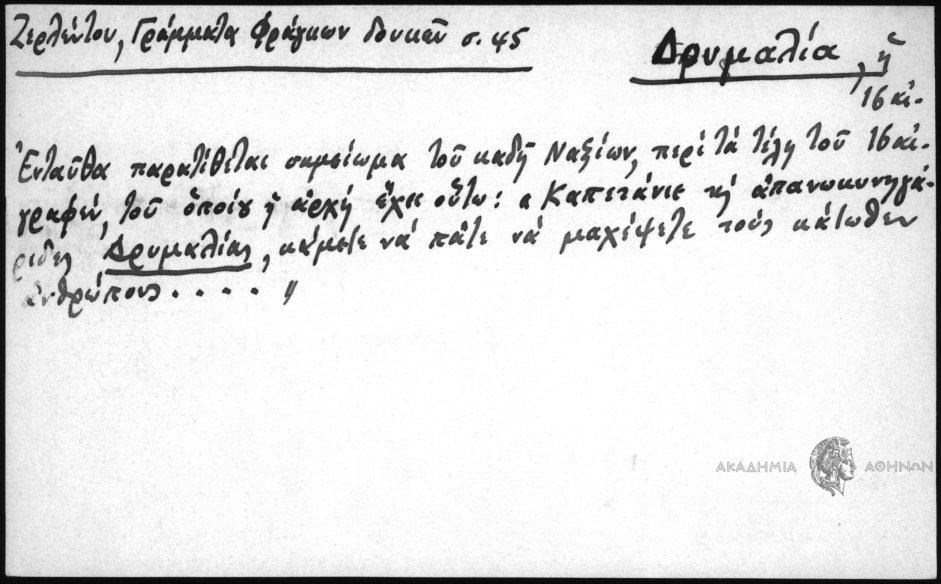 Ζερλέντου, Γράμματα Φράγκων δουκῶν σ. 45
Δρυμαλία, ἡ
16 αἰ.
Ἐνταῦθα παρατίθεται σημείωμα τοῦ καδῆ Ναξίων, περὶ τὰ τέλη τοῦ 16 αἰ.
γραφέν, τοῦ ὁποίου ἡ ἀρχὴ ἔχει οὕτω: « Καπετάνιε κὴ ἀπανωκυνηγά-
ριδες Δρυμαλίας, κάμετε νά πάτε νά μαχέψετε τούς κάτωθεν
ἀνθρώπους . . . . »
ΑΚΑΔΗΜΙΑ ΑΘΗΝΩΝ